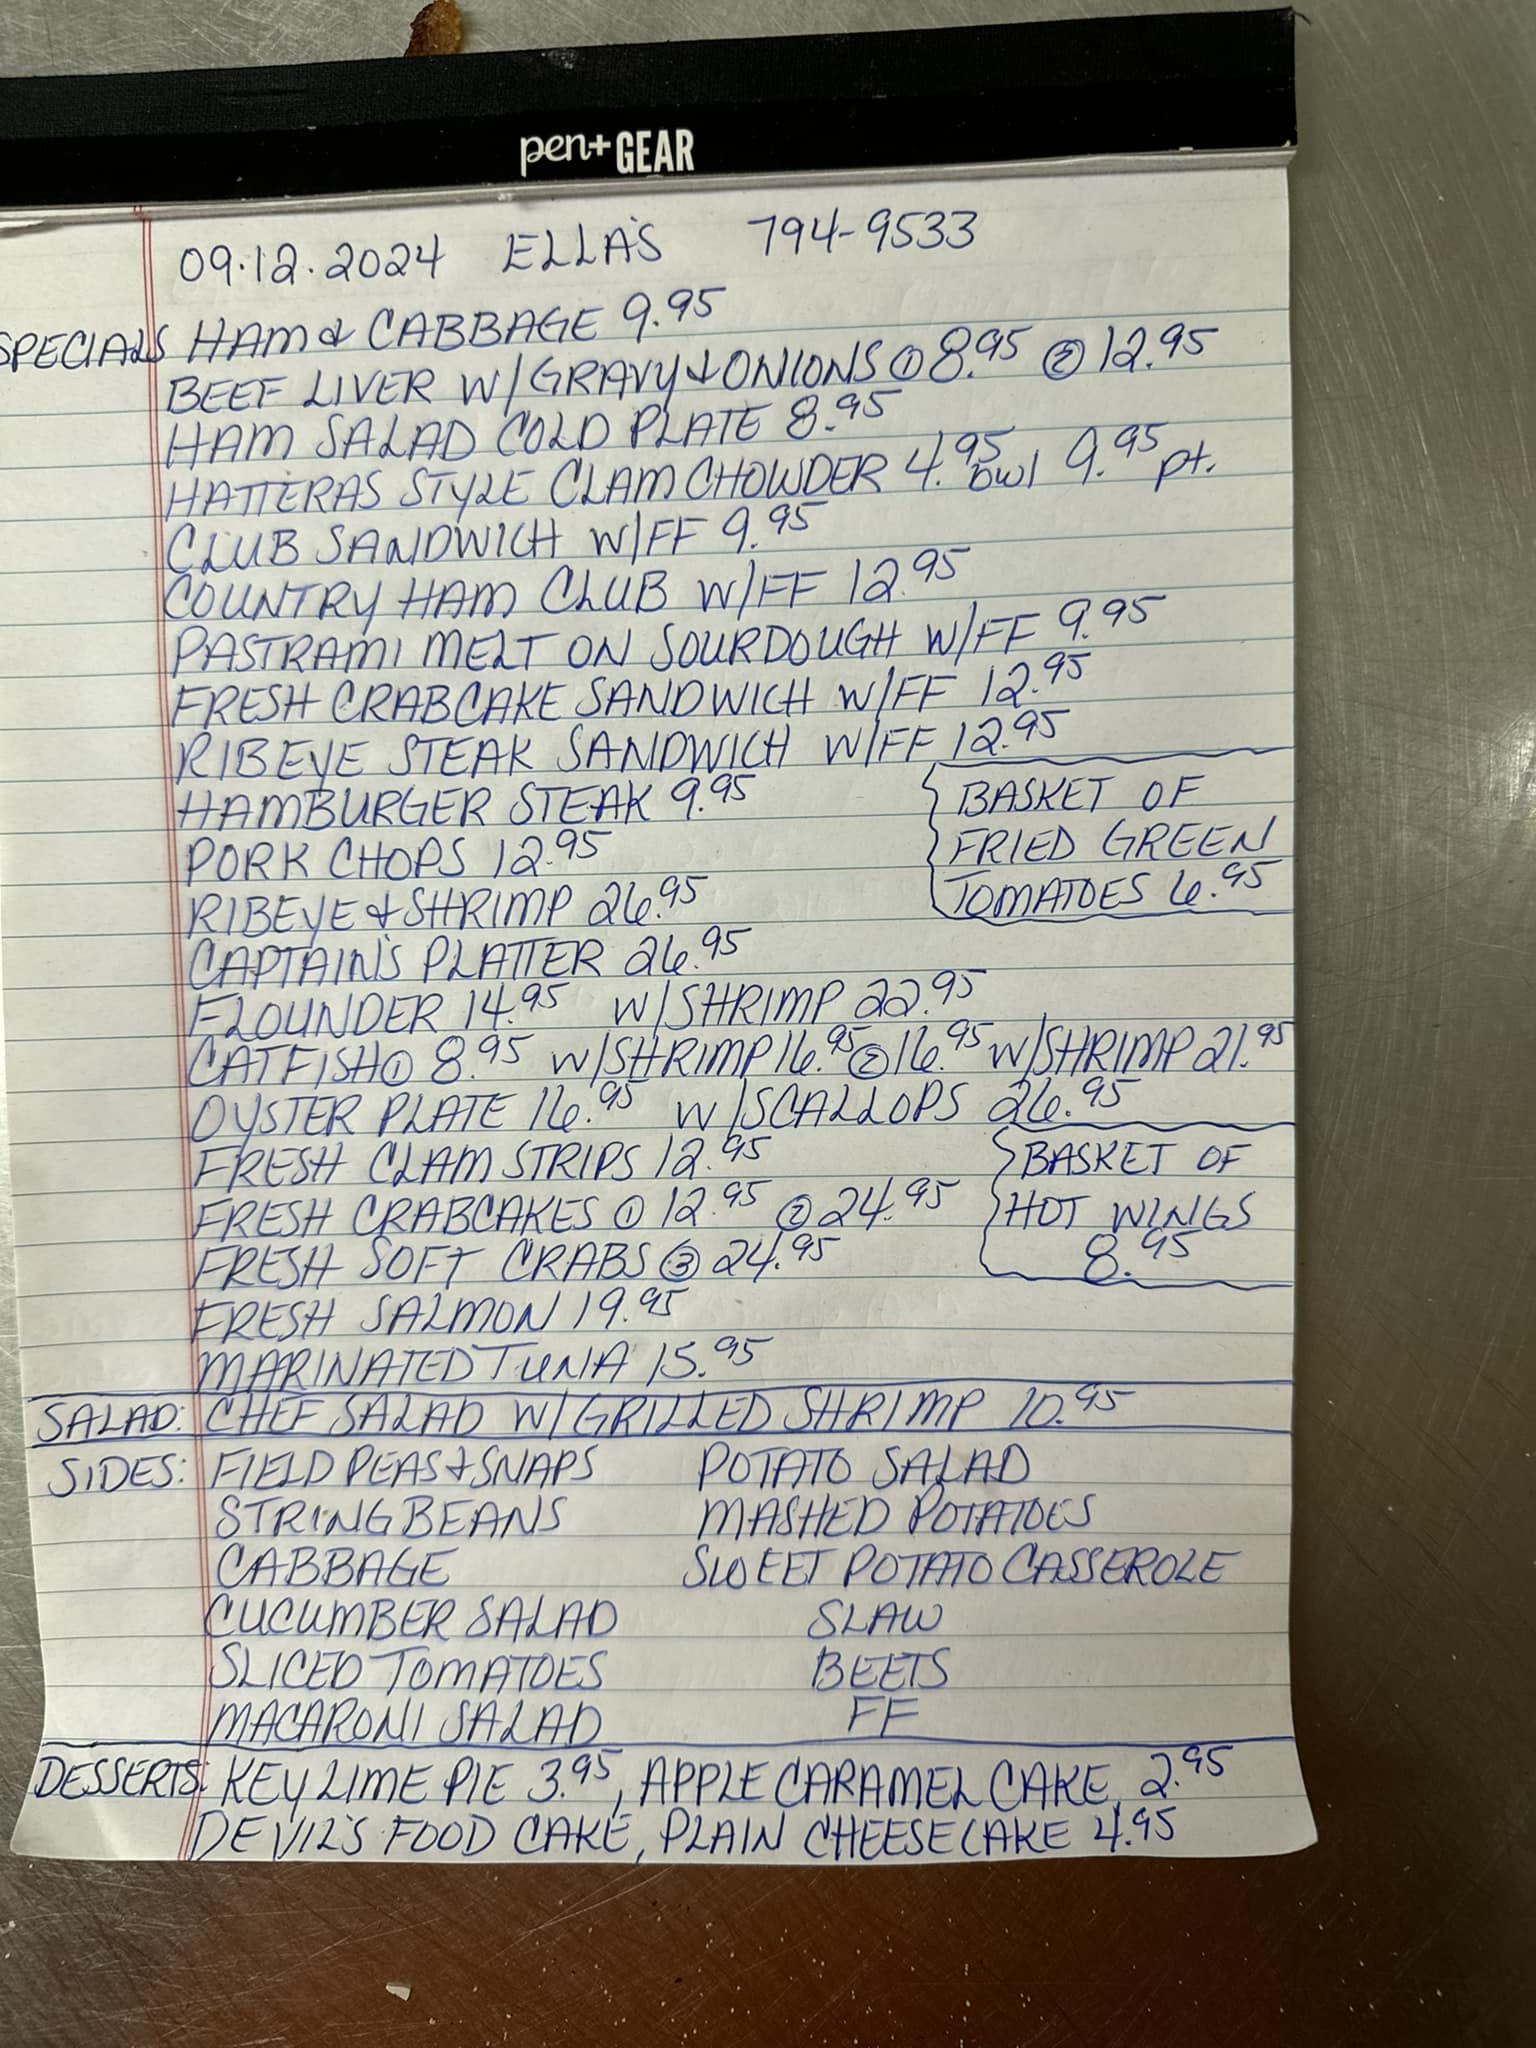 pen+GEAR
09.12.2024 ELLA'S 794-9533
SPECIALS HAM & CABBAGE 9.95
BEEF LIVER W/GRAVY & ONIONS ① 8.95 ② 12.95
HAM SALAD COLD PLATE 8.95
HATTERAS STYLE CLAM CHOWDER 4.95 bwl 9.95 pt.
CLUB SANDWICH W/FF 9.95
COUNTRY HAM CLUB W/FF 12.95
PASTRAMI MELT ON SOURDOUGH W/FF 9.95
FRESH CRABCAKE SANDWICH W/FF 12.95
RIBEYE STEAK SANDWICH W/FF 12.95
HAMBURGER STEAK 9.95
PORK CHOPS 12.95
RIBEYE & SHRIMP 26.95
BASKET OF
FRIED GREEN
TOMATOES 6.95
CAPTAIN'S PLATTER 26.95
FLOUNDER 14.95 W/SHRIMP 22.95
CATFISH ① 8.95 W/SHRIMP 16.95 ② 16.95 W/SHRIMP 21.95
OYSTER PLATE 16.95 W/SCALLOPS 26.95
FRESH CLAM STRIPS 12.95
FRESH CRABCAKES ① 12.95 ② 24.95
FRESH SOFT CRABS ③ 24.95
BASKET OF
HOT WINGS
8.95
FRESH SALMON 19.95
MARINATED TUNA 15.95
SALAD: CHEF SALAD W/GRILLED SHRIMP 10.95
SIDES: FIELD PEAS & SNAPS POTATO SALAD
STRING BEANS MASHED POTATOES
CABBAGE SWEET POTATO CASSEROLE
CUCUMBER SALAD SLAW
SLICED TOMATOES BEETS
MACARONI SALAD FF
DESSERTS: KEY LIME PIE 3.95, APPLE CARAMEL CAKE 2.95
DEVIL'S FOOD CAKE, PLAIN CHEESECAKE 4.95